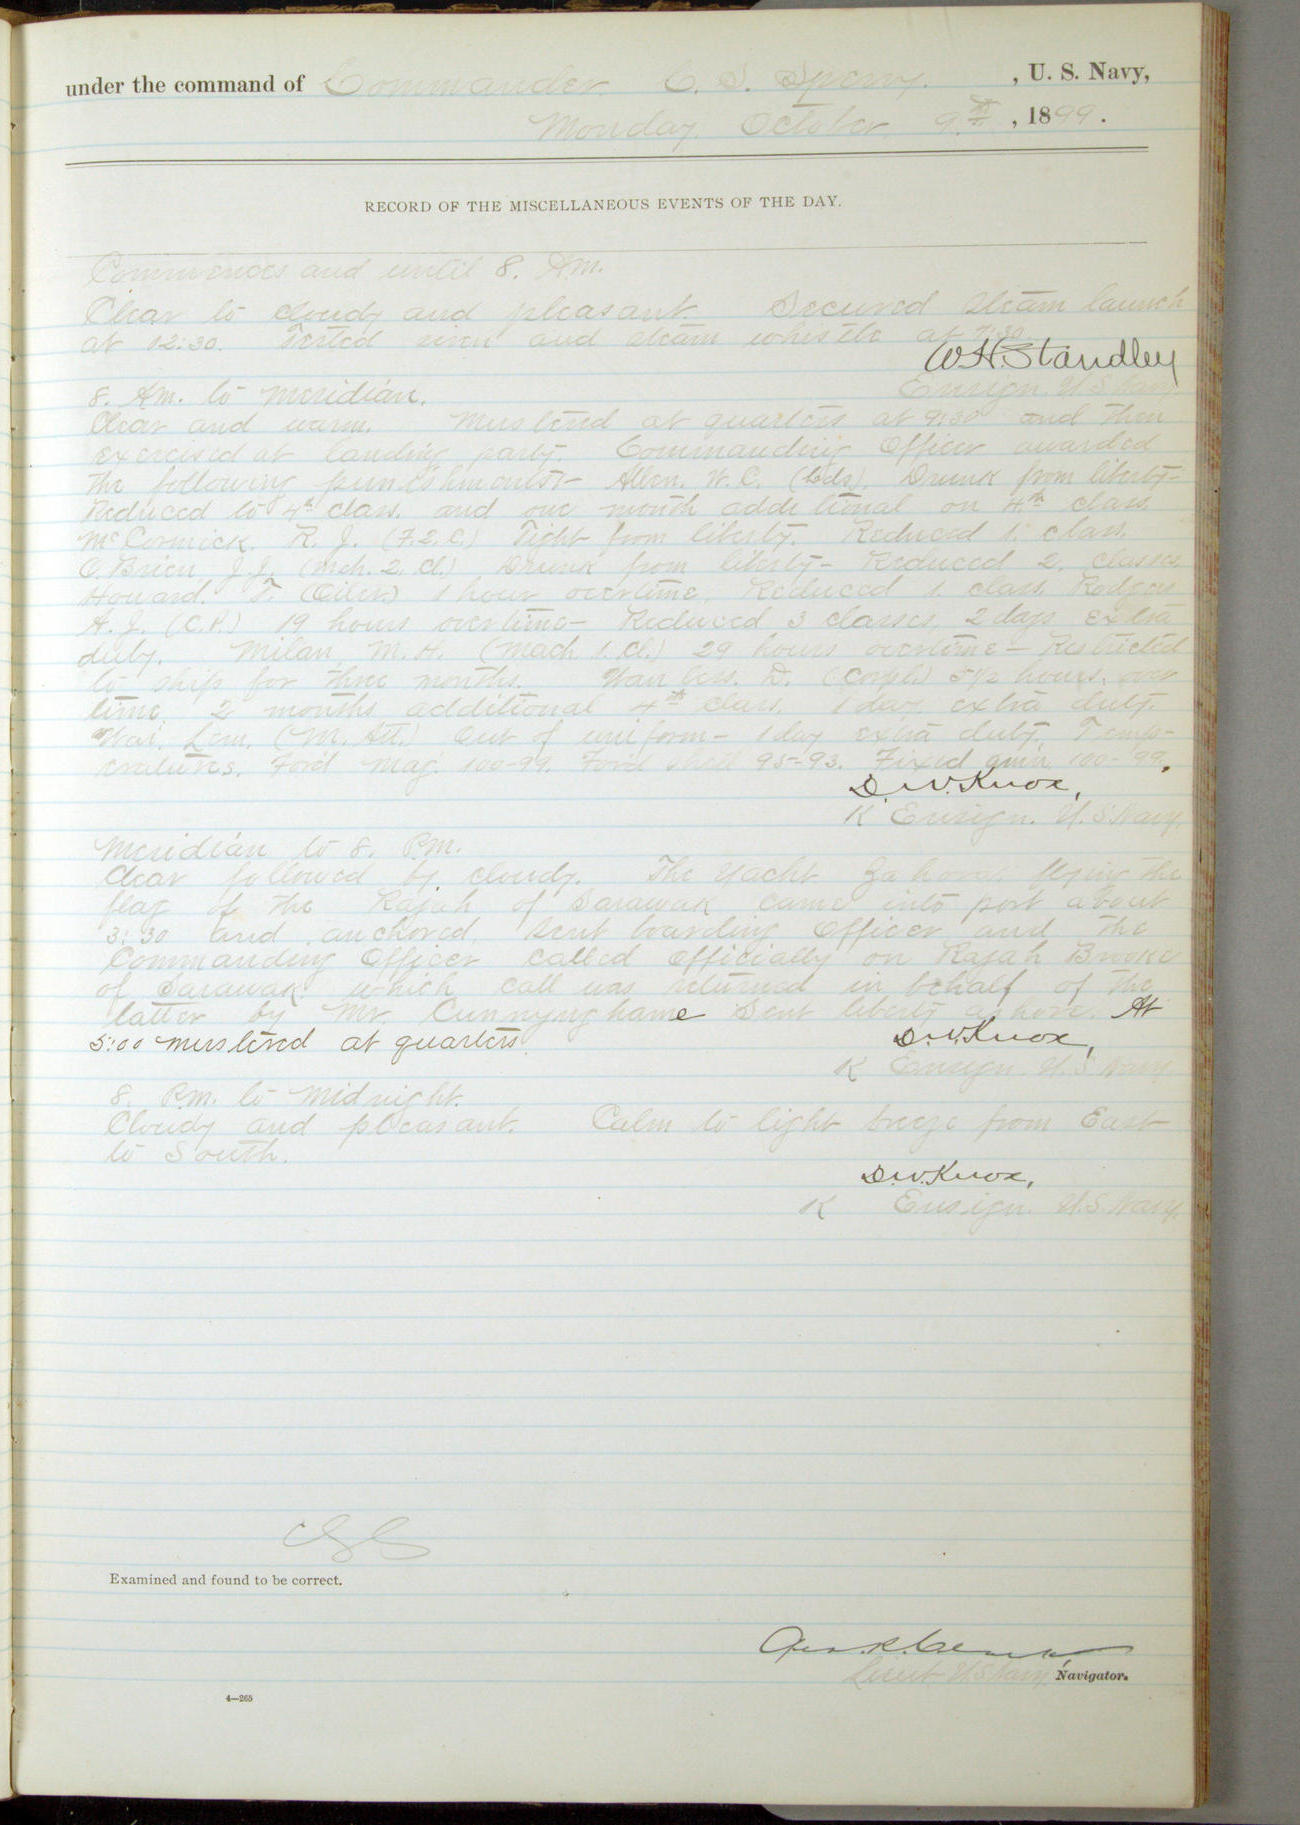 under the command of Commander C. S. Sperry. , U. S. Navy,
Monday October 9th , 1899.
RECORD OF THE MISCELLANEOUS EVENTS OF THE DAY.
Commences and until 8. Am.
Clear to cloudy and pleasant Secured steam launch
at 12:30. Tested siren and steam whistle at 7:30
W.H. Standley
Ensign U.S. Navy
8. Am. to Meridian.
Clear and warm. Mustered at quarters at 9:30 and then
exercised at landing party. Commanding Officer awarded
the following punishments:- Allen. W. C. (Lds). Drunk from liberty-
Reduced to 4th class. and one month additional on 4th class.
McCormick. R. J. (F.2.C.) Tight from liberty. Reduced 1. class.
O.Brien J.J. (Mch. 2. Cl.) Drunk from liberty- Reduced 2. classes.
Howard. T. (Oiler) 1 hour overtime. Reduced 1. class. Rodgers
A. J. (C.P.) 19 hours overtime- Reduced 3 classes, 2 days extra
duty. Milan, M. H. (Mach. 1. Cl.) 29 hours overtime- Restricted
to ship for three months. D. (Corpl.) 5 1/2 hours. over
time. 2 months additional 4th class. 1 day extra duty.
Wai, Lem. (M. Att.) Out of uniform- 1 day extra duty. Temp-
eratures. Ford mag. 100-99. Ford shell 95-93. Fixed amm. 100-99.
D.W. Knox,
K Ensign. U.S. Navy.
Meridian to 8. P.m.
Clear followed by cloudy. The Yacht Zahora flying the
flag of the Rajah of Sarawak came into port about
3:30 and anchored. Sent boarding Officer and the
Commanding Officer called officially on Rajah Brooke
of Sarawak which call was returned in behalf of the
latter by Mr. Cunnynghame Sent liberty ashore. At
5:00 mustered at quarters
D.W. Knox,
K Ensign. U.S. Navy
8. P.m. to Midnight.
Cloudy and pleasant. Calm to light breeze from East
to South.
D.W. Knox,
K Ensign. U.S. Navy.
CSS
Examined and found to be correct.
Lieut. U.S. Navy, Navigator.
4—265